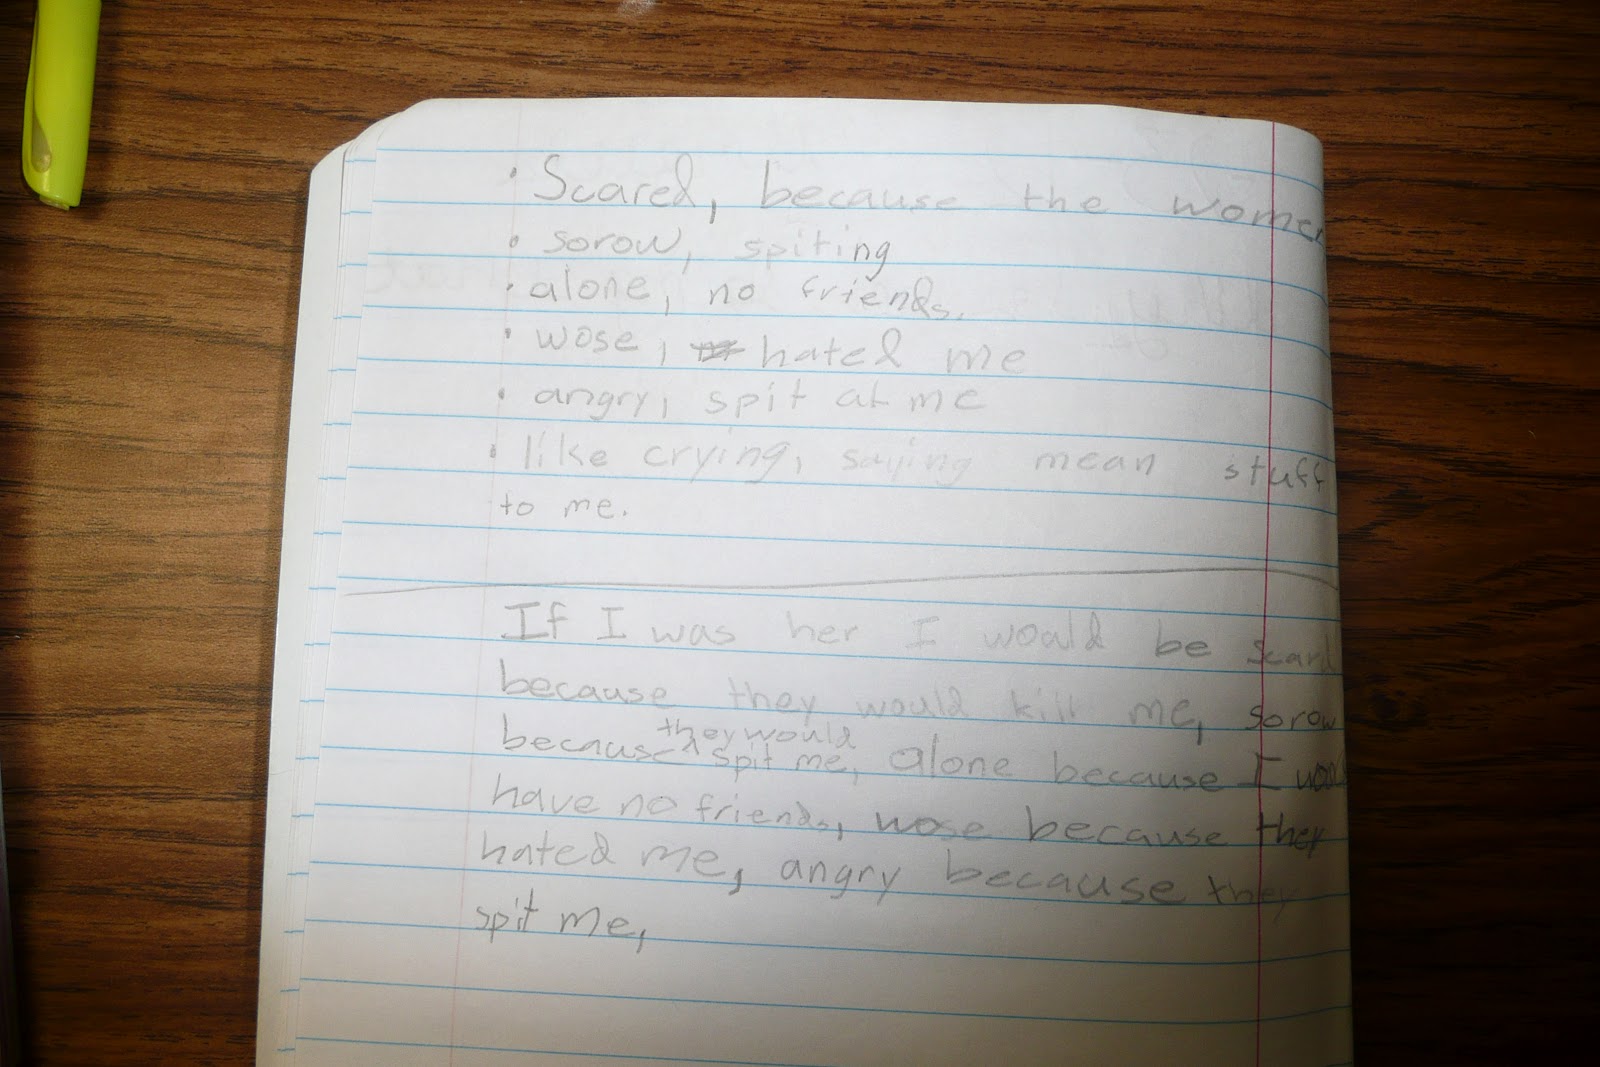 • Scared, because the women
• sorow, spiting
• alone, no friends.
• wose, hated me
• angry, spit at me
• like crying, saying mean stuff
to me.
If I was her I would be scard
because they would kill me, sorow
because they would spit me, alone because I would
have no friends, wose because they
hated me, angry because they
spit me,